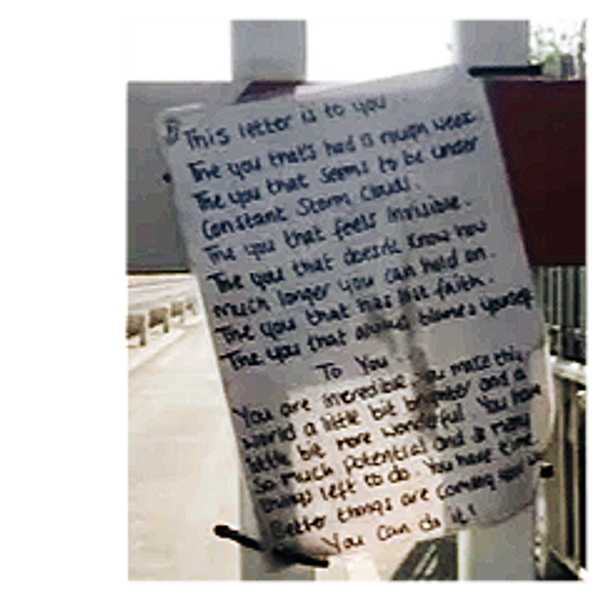 This letter is to you
The you that's had a rough week.
The you that seems to be under
Constant Storm Clouds.
The you that feels invisible.
The you that doesn't know how
much longer you can hold on.
The you that has lost faith.
The you that always blames yourself
To You
You are incredible. You make this
world a little bit brighter and a
little bit more wonderful. You have
So much potential and so many
things left to do. You have time.
Better things are coming your
You can do it!